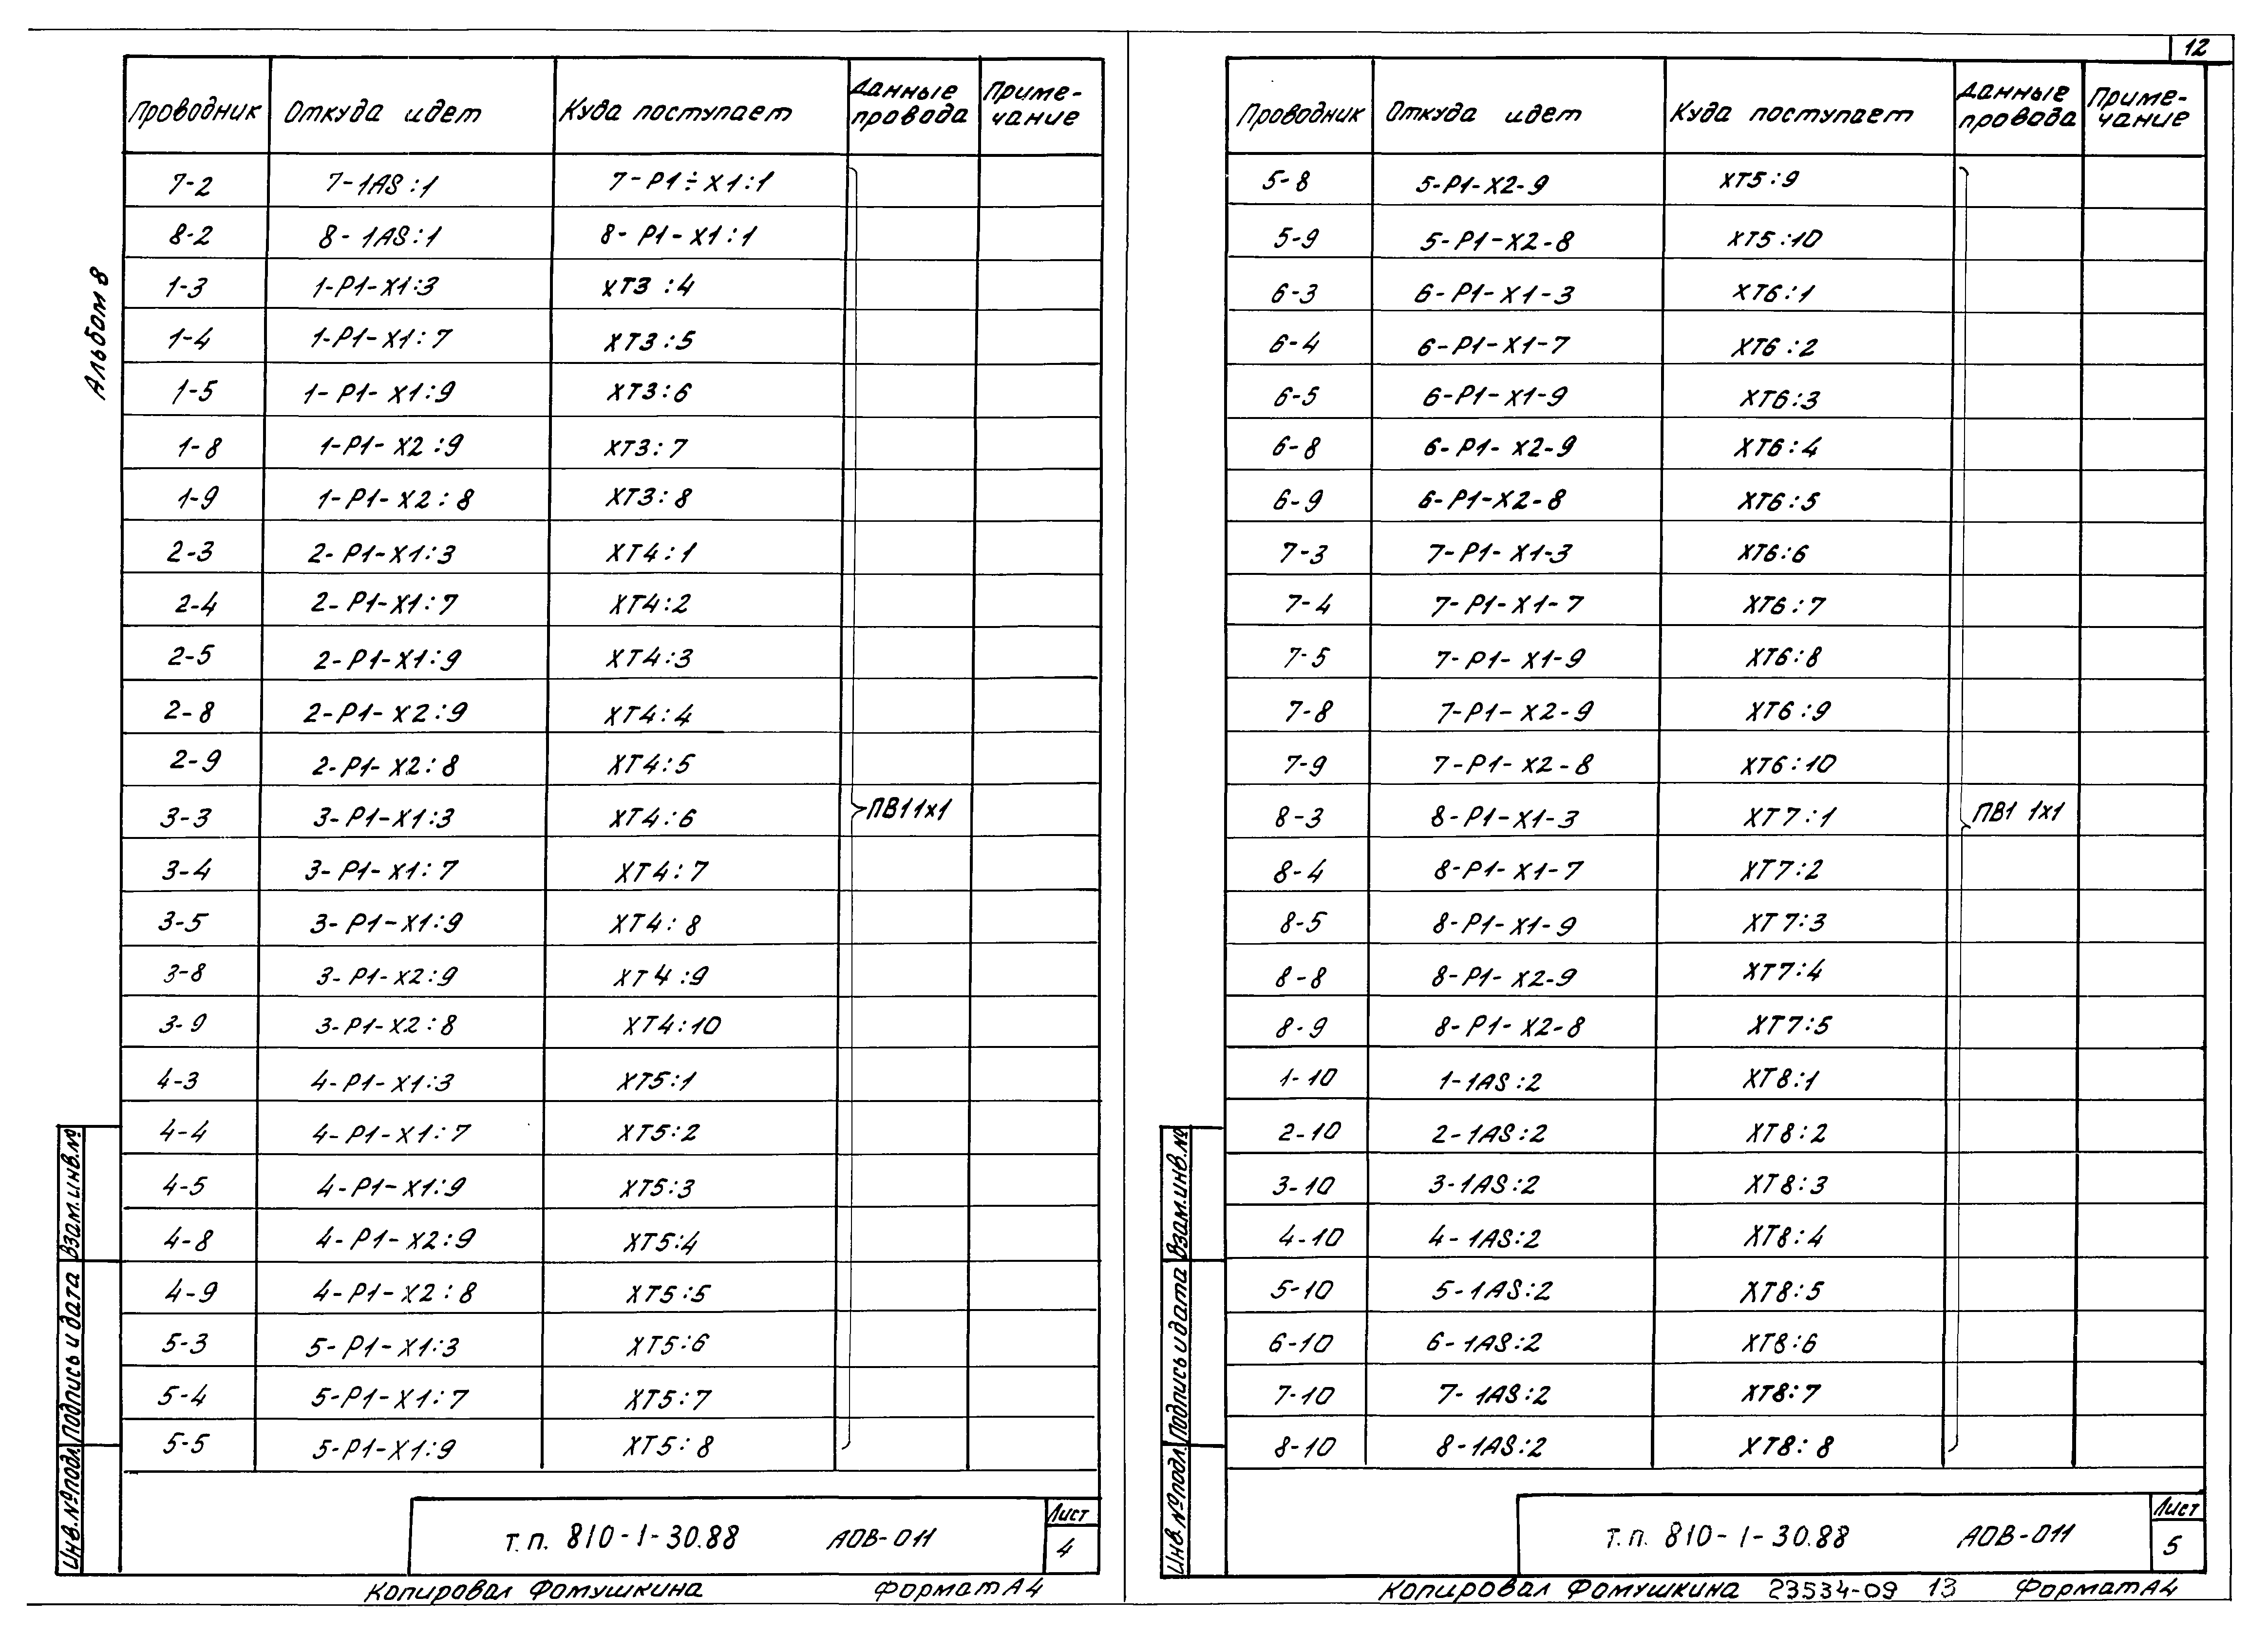 12
Альбом 8
Проводник Откуда идет Куда поступает Данные провода Приме-чание
7-2 7-1AS:1 7-P1÷X1:1
8-2 8-1AS:1 8-P1-X1:1
1-3 1-P1-X1:3 XT3:4
1-4 1-P1-X1:7 XT3:5
1-5 1-P1-X1:9 XT3:6
1-8 1-P1-X2:9 XT3:7
1-9 1-P1-X2:8 XT3:8
2-3 2-P1-X1:3 XT4:1
2-4 2-P1-X1:7 XT4:2
2-5 2-P1-X1:9 XT4:3
2-8 2-P1-X2:9 XT4:4
2-9 2-P1-X2:8 XT4:5
3-3 3-P1-X1:3 XT4:6 ПВ1 1х1
3-4 3-P1-X1:7 XT4:7
3-5 3-P1-X1:9 XT4:8
3-8 3-P1-X2:9 XT4:9
3-9 3-P1-X2:8 XT4:10
4-3 4-P1-X1:3 XT5:1
4-4 4-P1-X1:7 XT5:2
4-5 4-P1-X1:9 XT5:3
4-8 4-P1-X2:9 XT5:4
4-9 4-P1-X2:8 XT5:5
5-3 5-P1-X1:3 XT5:6
5-4 5-P1-X1:7 XT5:7
5-5 5-P1-X1:9 XT5:8
Взам.инв.№
Подпись и дата
Инв.№подл.
т.п. 810-1-30.88 АОВ-011 Лист 4
Копировал Фомушкина Формат А4
Проводник Откуда идет Куда поступает Данные провода Приме-чание
5-8 5-P1-X2-9 XT5:9
5-9 5-P1-X2-8 XT5:10
6-3 6-P1-X1-3 XT6:1
6-4 6-P1-X1-7 XT6:2
6-5 6-P1-X1-9 XT6:3
6-8 6-P1-X2-9 XT6:4
6-9 6-P1-X2-8 XT6:5
7-3 7-P1-X1-3 XT6:6
7-4 7-P1-X1-7 XT6:7
7-5 7-P1-X1-9 XT6:8
7-8 7-P1-X2-9 XT6:9
7-9 7-P1-X2-8 XT6:10
8-3 8-P1-X1-3 XT7:1 ПВ1 1х1
8-4 8-P1-X1-7 XT7:2
8-5 8-P1-X1-9 XT7:3
8-8 8-P1-X2-9 XT7:4
8-9 8-P1-X2-8 XT7:5
1-10 1-1AS:2 XT8:1
2-10 2-1AS:2 XT8:2
3-10 3-1AS:2 XT8:3
4-10 4-1AS:2 XT8:4
5-10 5-1AS:2 XT8:5
6-10 6-1AS:2 XT8:6
7-10 7-1AS:2 XT8:7
8-10 8-1AS:2 XT8:8
Взам.инв.№
Подпись и дата
Инв.№подл.
т.п. 810-1-30.88 АОВ-011 Лист 5
Копировал Фомушкина 23534-09 13 Формат А4